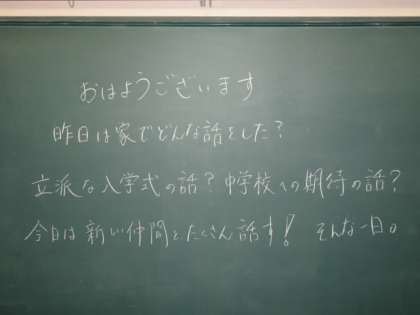 おはようございます
昨日は家でどんな話をした？
立派な入学式の話？中学校への期待の話？
今日は新しい仲間とたくさん話す！そんな一日。